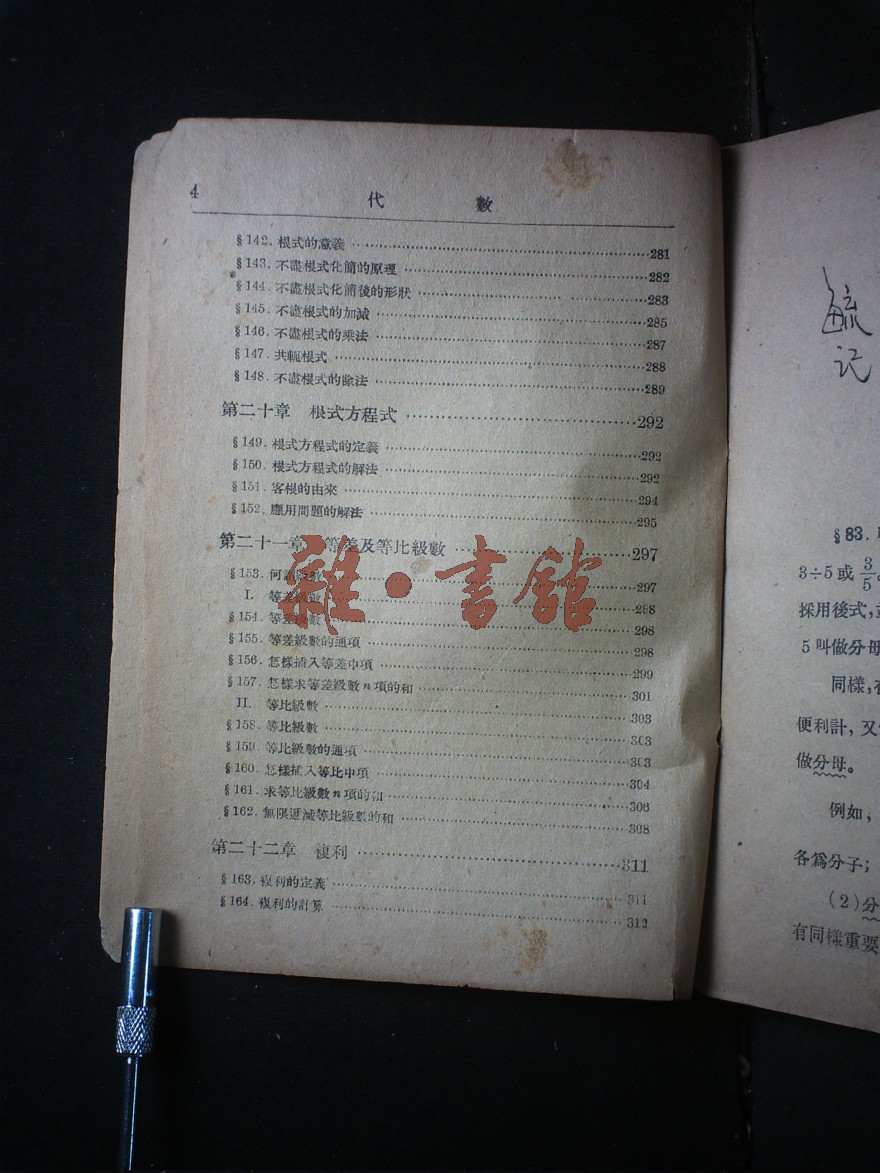 4
代 數
§142. 根式的意義 281
§143. 不盡根式化簡的原理 282
§144. 不盡根式化簡後的形狀 283
§145. 不盡根式的加減 285
§146. 不盡根式的乘法 287
§147. 共軛根式 288
§148. 不盡根式的除法 289
第二十章 根式方程式 292
§149. 根式方程式的定義 292
§150. 根式方程式的解法 292
§151. 客根的由來 294
§152. 應用問題的解法 295
第二十一章 等差及等比級數 297
§153. 何謂級數 297
I. 等差級數 298
§154. 等差級數 298
§155. 等差級數的通項 298
§156. 怎樣插入等差中項 299
§157. 怎樣求等差級數n項的和 301
II. 等比級數 303
§158. 等比級數 303
§159. 等比級數的通項 303
§160. 怎樣插入等比中項 304
§161. 求等比級數n項的和 306
§162. 無限遞減等比級數的和 308
第二十二章 複利 311
§163. 複利的定義 311
§164. 複利的計算 312
雜·書館
記
§83.
3÷5或3/5。
採用後式,
5叫做分母
同樣,
便利計,又
做分母。
例如,
各爲分子;
(2)分
有同樣重要